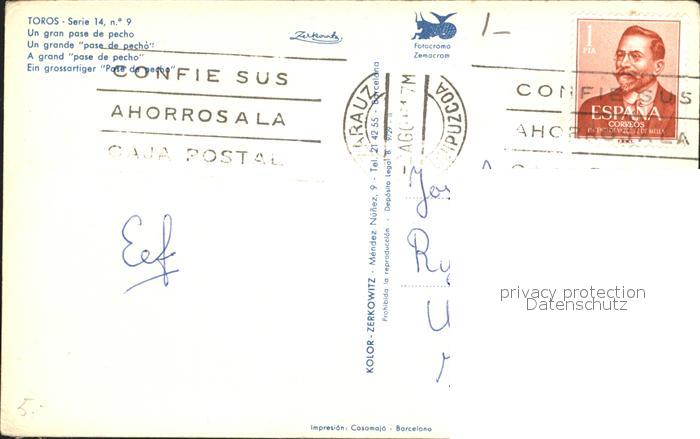 TOROS - Serie 14, n.º 9
Un gran pase de pecho
Un grande "pase de pechò"
A grand "pase de pecho"
Ein grossartiger "Pase de pecho"
Zerkowitz
Fotocromo
Zemacrom
1/-
1
PTA
ESPAÑA
CORREOS
CONFIE SUS
AHORROS A LA
CAJA POSTAL
CONFIE SUS
AHORROS A LA
KOLOR-ZERKOWITZ - Méndez Núñez, 9 - Tel. 21 42 55 - Barcelona
Prohibida la reproducción - Depósito Legal B.
Eef
privacy protection
Datenschutz
5.-
Impresión: Casamajó - Barcelona